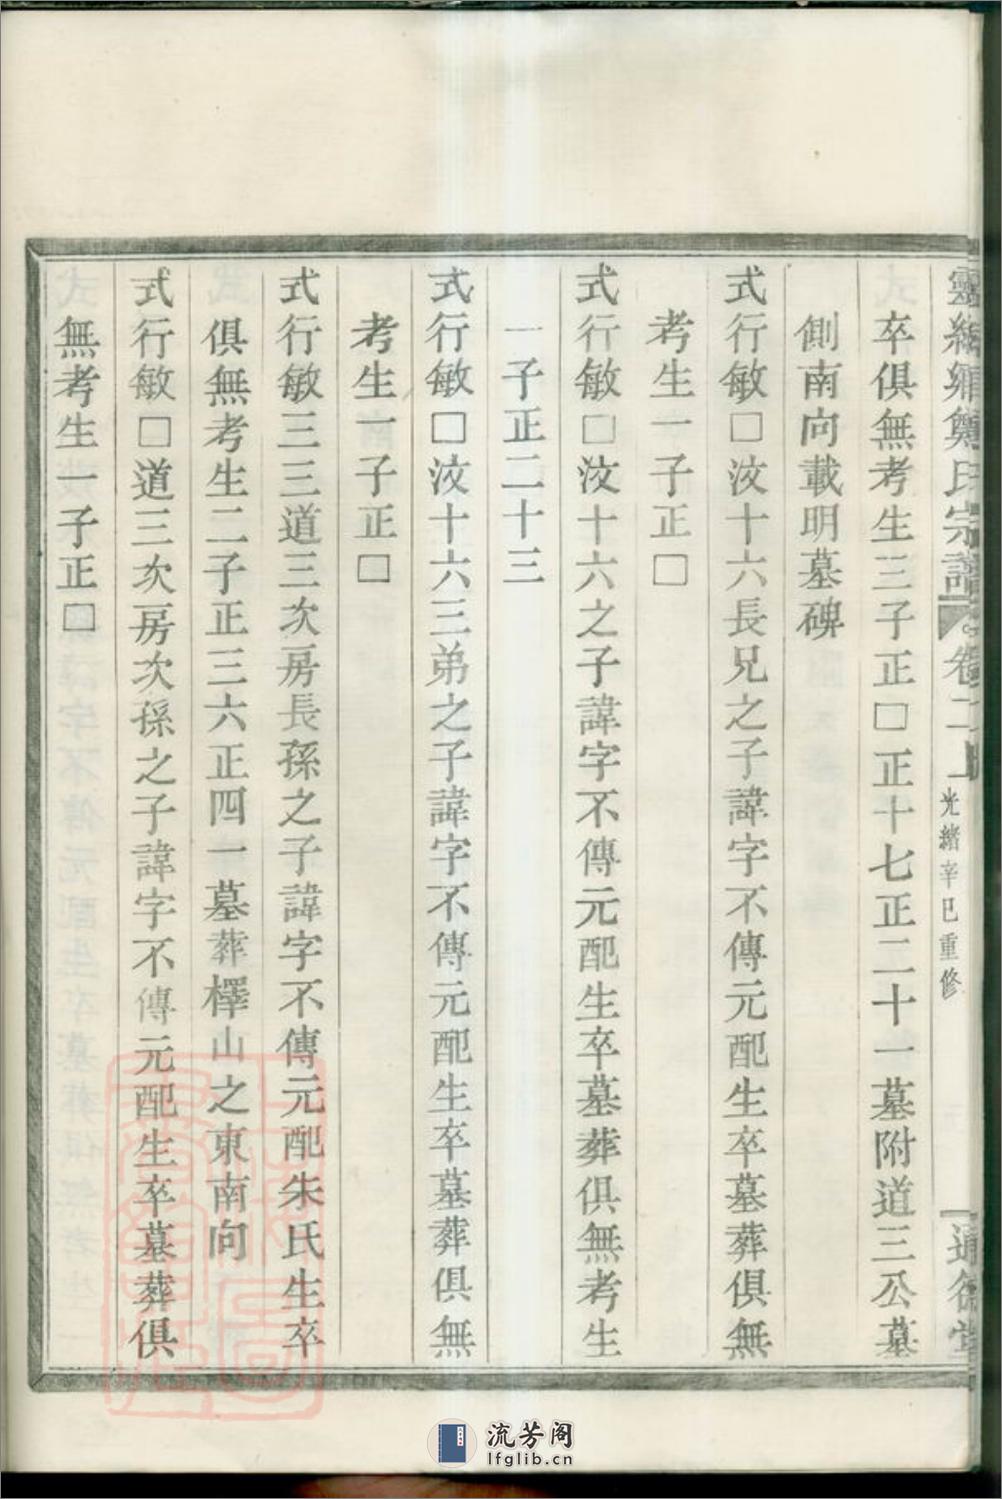 氏宗譜 卷二上 光緒辛巳重修
卒俱無考生三子正□正十七正二十一墓附道三公墓
側南向載明墓碑
式行敏□汶十六長兄之子諱字不傳元配生卒墓葬俱無
考生一子正□
式行敏□汶十六之子諱字不傳元配生卒墓葬俱無考生
一子正二十三
式行敏□汶十六三弟之子諱字不傳元配生卒墓葬俱無
考生一子正□
式行敏三三道三次房長孫之子諱字不傳元配朱氏生卒
俱無考生二子正三六正四一墓葬檡山之東南向
式行敏□道三次房次孫之子諱字不傳元配生卒墓葬俱
無考生一子正□
流芳阁
lfglib.cn